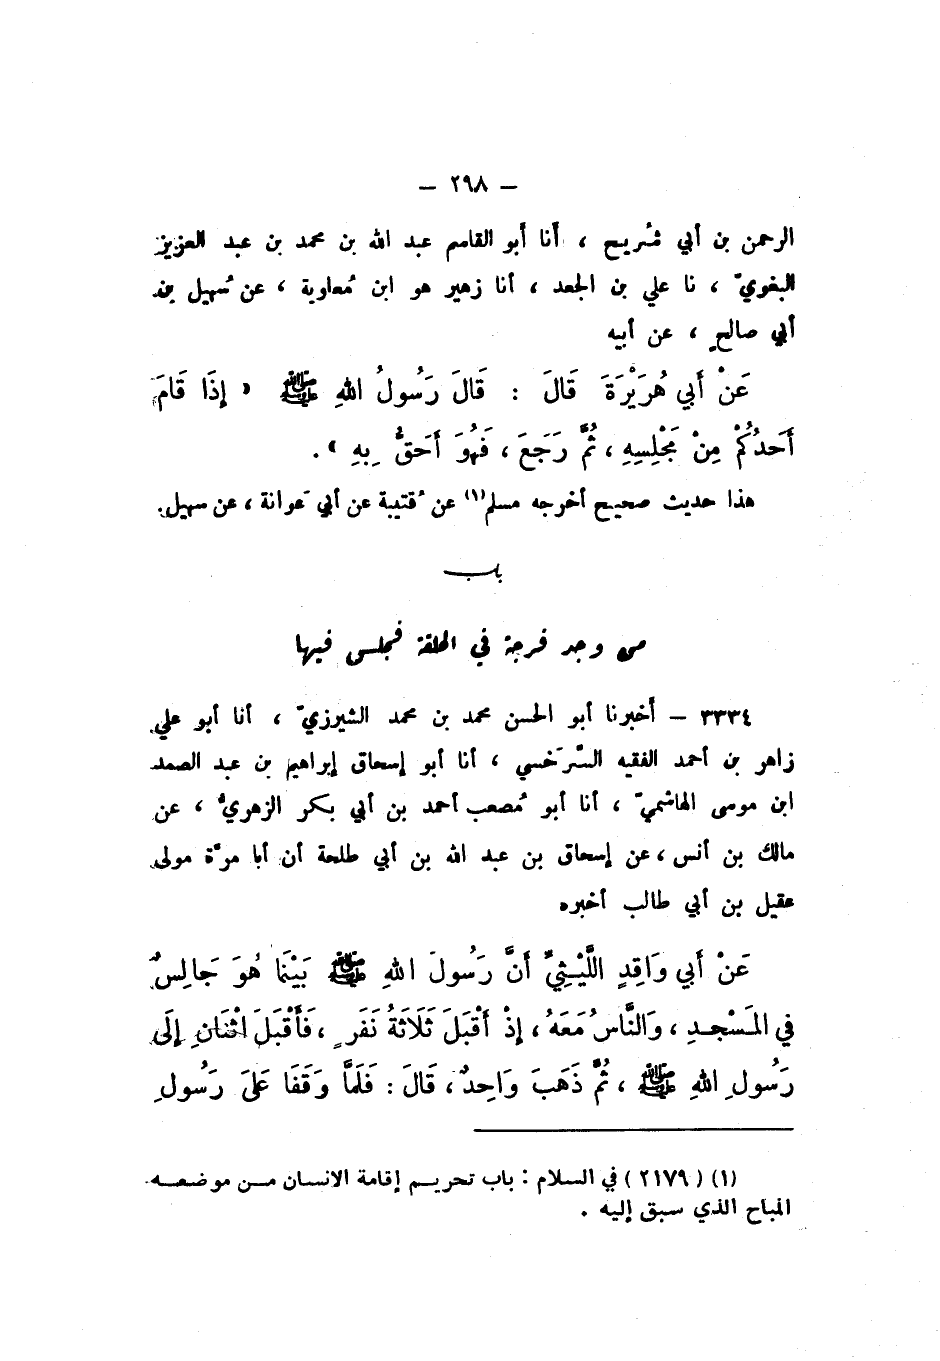 — ٢٩٨ —
الرحمن بن أبي شُريح ، أنا أبو القاسم عبد الله بن محمد بن عبد العزيز
البغويّ ، نا علي بن الجعد ، أنا زهير هو ابن مُعاوية ، عن سُهيل بن
أبي صالحٍ ، عن أبيه
عَنْ أَبِي هُرَيْرَةَ قَالَ : قَالَ رَسُولُ اللهِ ﷺ « إِذَا قَامَ
أَحَدُكُمْ مِنْ مَجْلِسِهِ ، ثُمَّ رَجَعَ ، فَهُوَ أَحَقُّ بِهِ » .
هذا حديث صحيح أخرجه مسلم(١) عن قُتيبة عن أبي عَوانة ، عن سهيل.
باب
من وجد فرجة في الحلقة فجلس فيها
٣٣٣٤ – أخبرنا أبو الحسن محمد بن محمد الشيرزيّ ، أنا أبو علي
زاهر بن أحمد الفقيه السَّرَخسي ، أنا أبو إسحاق إبراهيم بن عبد الصمد
ابن موسى الهاشميّ ، أنا أبو مُصعب أحمد بن أبي بكر الزهريُّ ، عن
مالك بن أنس ، عن إسحاق بن عبد الله بن أبي طلحة أن أبا مرَّة مولى
عقيل بن أبي طالب أخبره
عَنْ أَبِي وَاقِدٍ اللَّيْثِيِّ أَنَّ رَسُولَ اللهِ ﷺ بَيْنَمَا هُوَ جَالِسٌ
فِي المَسْجِدِ ، وَالنَّاسُ مَعَهُ ، إِذْ أَقْبَلَ ثَلَاثَةُ نَفَرٍ ، فَأَقْبَلَ اثْنَانِ إِلَى
رَسُولِ اللهِ ﷺ ، ثُمَّ ذَهَبَ وَاحِدٌ ، قَالَ : فَلَمَّا وَقَفَا عَلَى رَسُولِ
(١) (٢١٧٩) في السلام : باب تحريم إقامة الانسان من موضعه
المباح الذي سبق إليه .